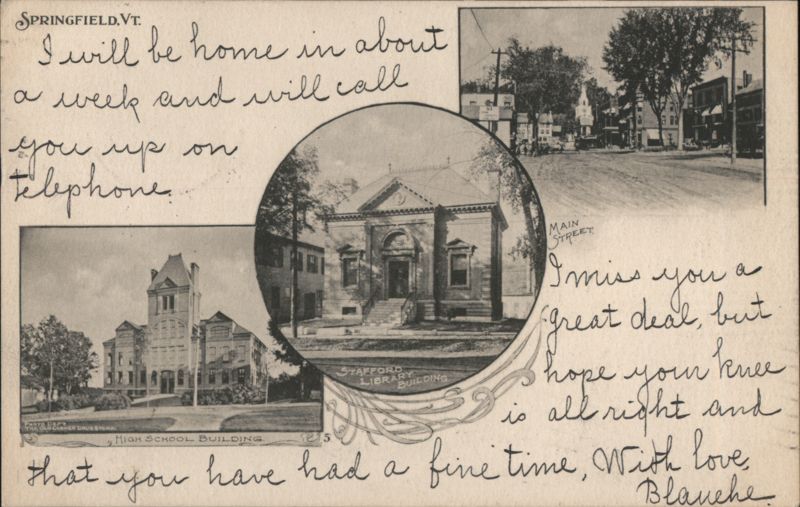 SPRINGFIELD, VT.
I will be home in about
a week and will call
you up on
telephone.
MAIN
STREET.
STAFFORD
LIBRARY
BUILDING
I miss you a
great deal, but
hope your knee
is all right and
HIGH SCHOOL BUILDING
5
that you have had a fine time, With love,
Blanche.